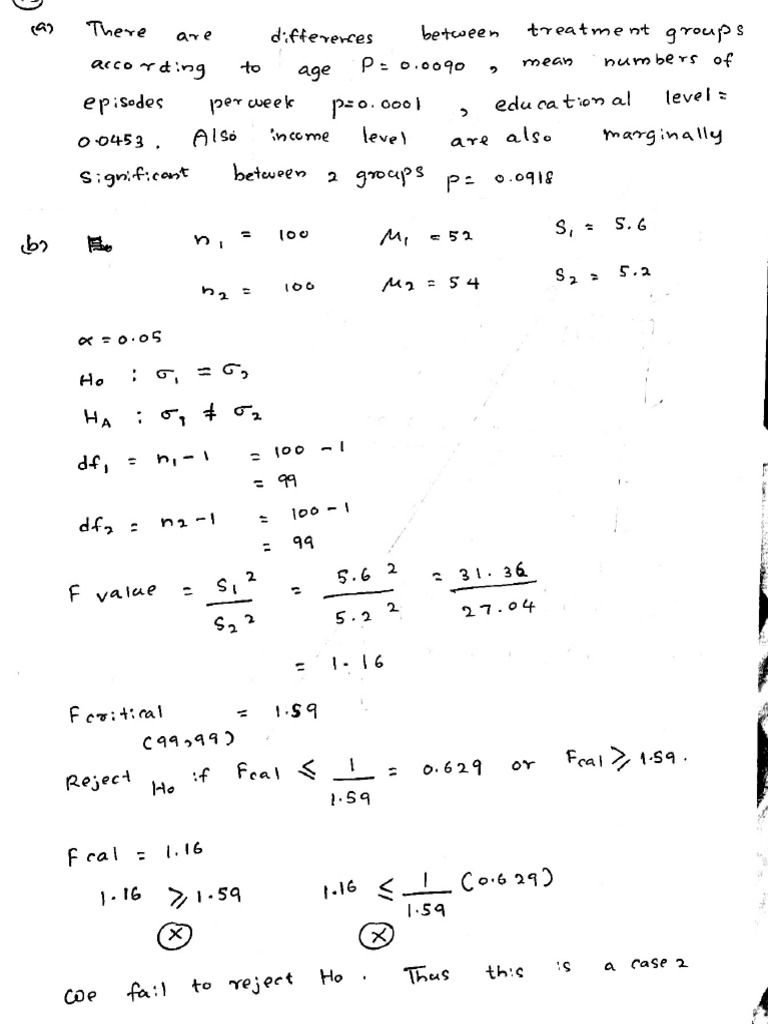 (a) There are differences between treatment groups
according to age P = 0.0090 , mean numbers of
episodes per week p=0.0001 , educational level =
0.0453 . Also income level are also marginally
significant between 2 groups p = 0.0918
(b) n₁ = 100 M₁ = 52 S₁ = 5.6
n₂ = 100 M₂ = 54 S₂ = 5.2
α = 0.05
Ho : σ₁ = σ₂
HA : σ₁ ≠ σ₂
df₁ = n₁-1 = 100 - 1
= 99
df₂ = n₂-1 = 100 - 1
= 99
F value = S₁² / S₂² = 5.6² / 5.2² = 31.36 / 27.04
= 1.16
F critical = 1.59
(99,99)
Reject Ho if Fcal ≤ 1 / 1.59 = 0.629 or Fcal ≥ 1.59 .
F cal = 1.16
1.16 ≥ 1.59 1.16 ≤ 1 / 1.59 (0.629)
(x) (x)
we fail to reject Ho . Thus this is a case 2